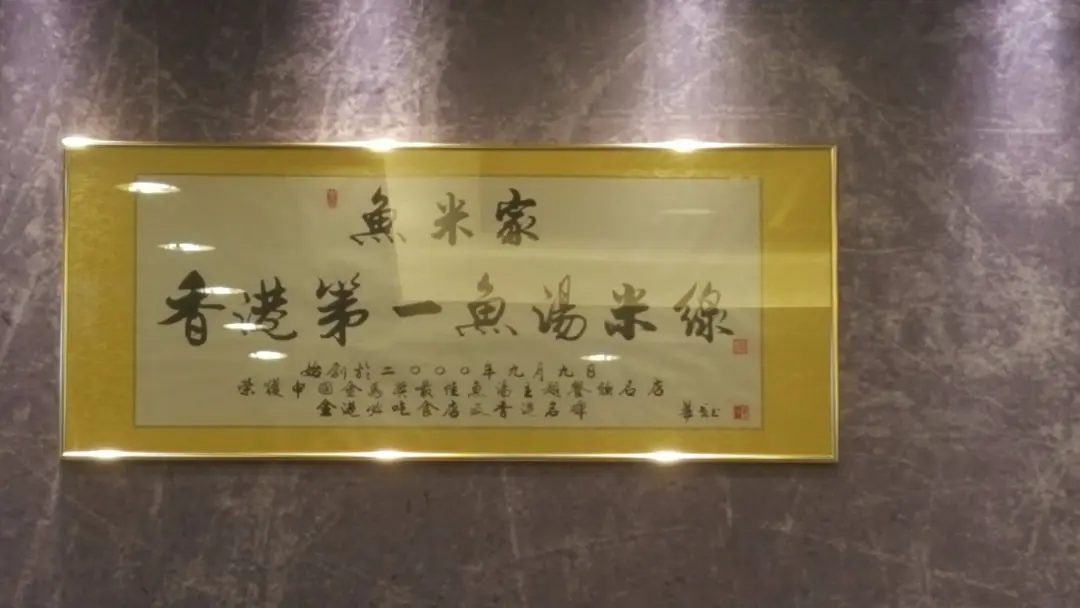 魚米家
香港第一魚湯米線
始創於二〇〇〇年九月九日
榮獲中國金馬獎最佳魚湯主題餐飲名店
全港必吃食店及香港名牌